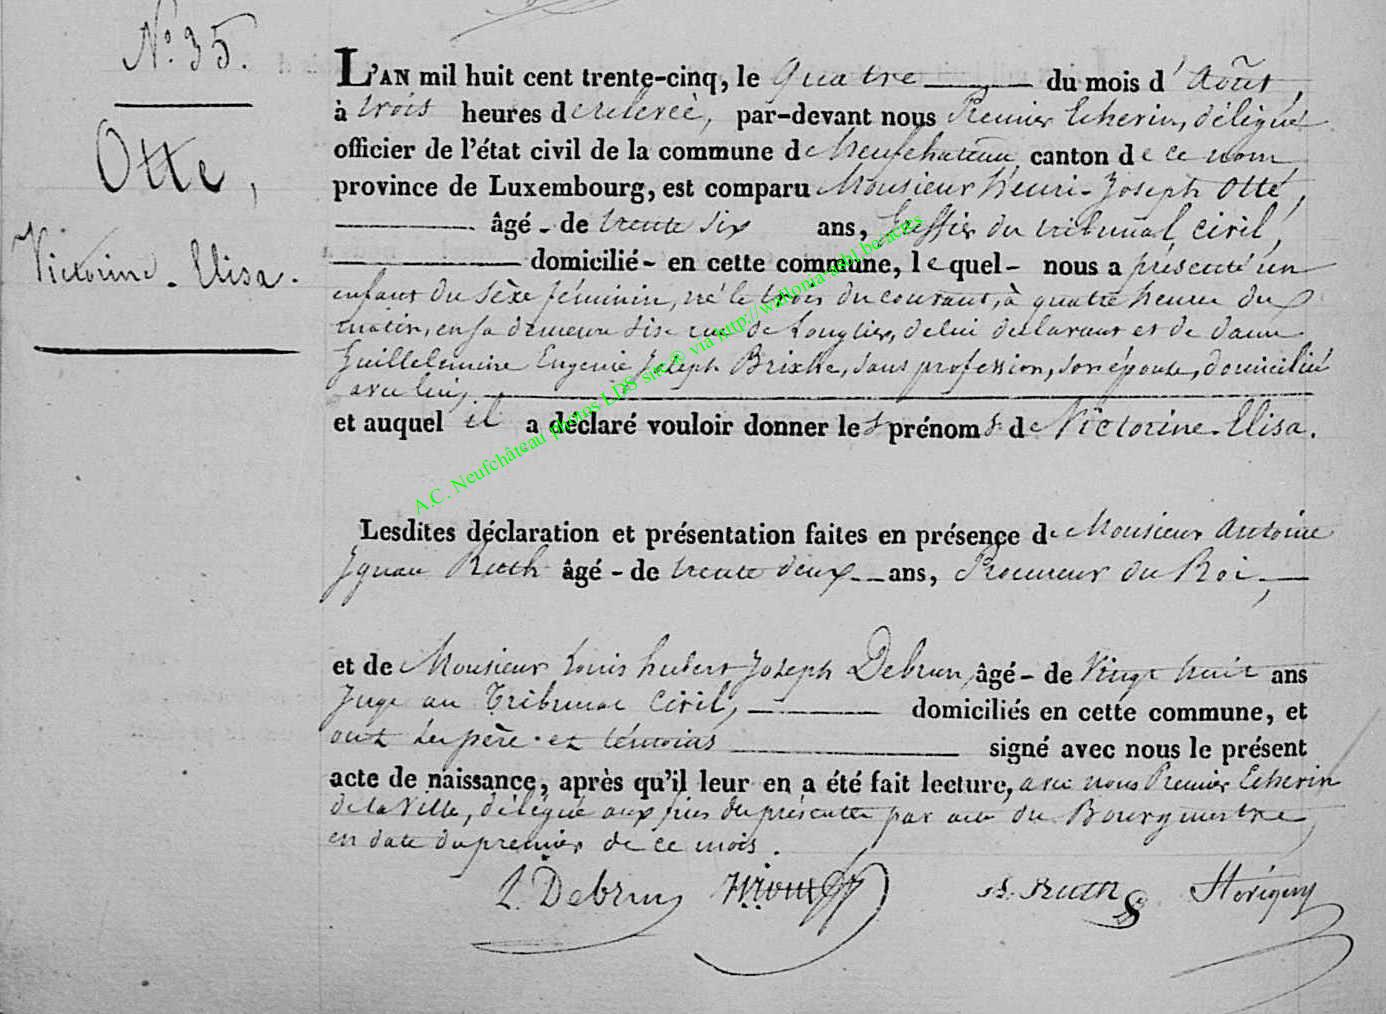 N.º 35.
Otte,
Victorine - Elisa.
L'AN mil huit cent trente-cinq, le Quatre du mois d' Août,
à trois heures de relevée, par-devant nous Premier Echevin, délégué
officier de l'état civil de la commune de Neufchateau, canton de ce nom
province de Luxembourg, est comparu Monsieur henri-Joseph Otte,
âgé - de trente six ans, Greffier du tribunal civil,
domicilié - en cette commune, lequel - nous a présenté un
enfant du sèxe féminin, né le trois du courant, à quatre heures du
matin, en sa demeure sise rue de Longlier, de lui déclarant et de dame
Guillelmine Eugenie Joseph Brixhe, sans profession, son épouse, domicilié
avec lui,
et auquel il a déclaré vouloir donner les prénoms de Victorine-Elisa.
Lesdites déclaration et présentation faites en présence de Monsieur Antoine
Ignace Ruth âgé - de trente deux ans, Procureur du Roi,
et de Monsieur Louis hubert Joseph Debrun, âgé - de Vingt huit ans
Juge au Tribunal Civil, domiciliés en cette commune, et
ont les père et témoins signé avec nous le présent
acte de naissance, après qu'il leur en a été fait lecture, avec nous Premier Echevin
de la Ville, délégué aux fins du présent par acte du Bourgmestre
en date du premier de ce mois.
L. Debrun A. Ruth
A.C. Neufchâteau photos LDS site® via http://wallonia-asbl.be/actes